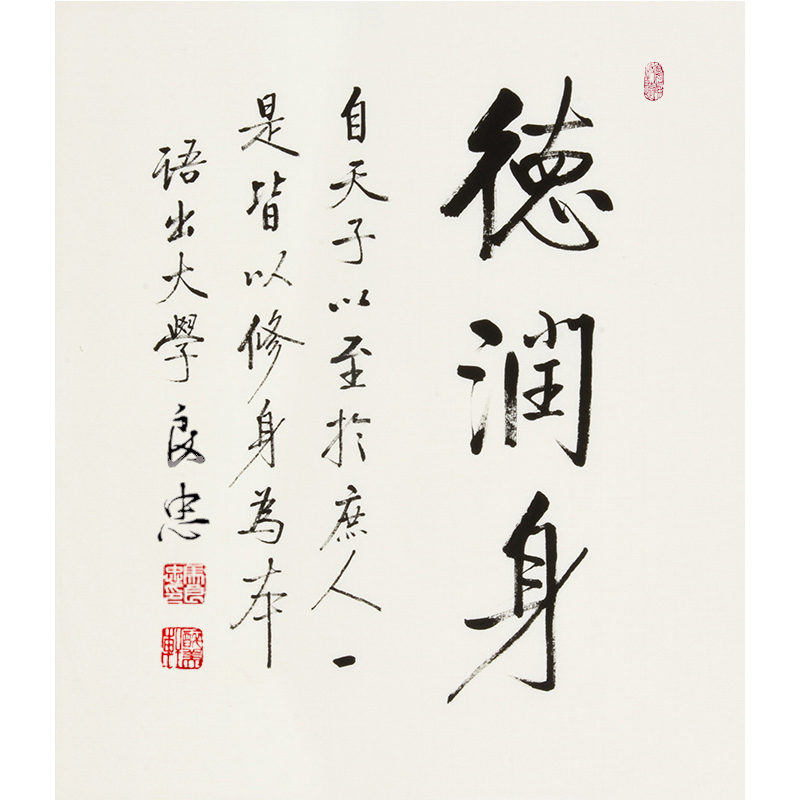 德润身
自天子以至於庶人一
是皆以修身為本
语出大學良忠